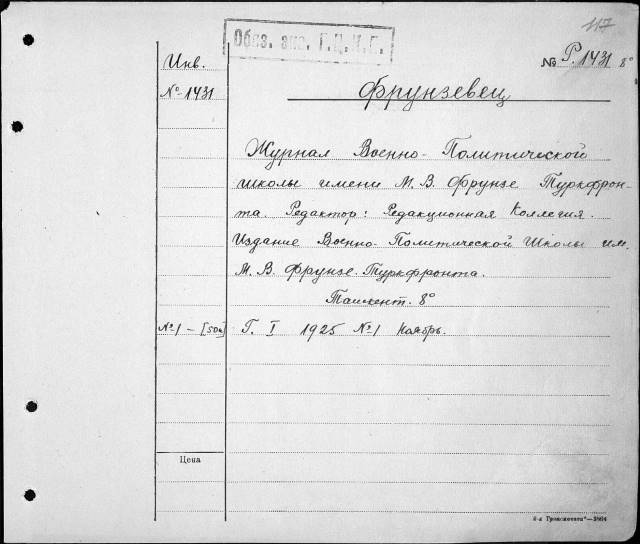 117
Обяз. экз. Г.Ц.К.Г.
Инв.
№ Р. 1431 8°
№ 1431
Фрунзевец
Журнал Военно-Политической
школы имени М. В. Фрунзе Туркфрон-
та. Редактор: Редакционная Коллегия.
Издание Военно-Политической Школы им.
М. В. Фрунзе. Туркфронта.
Ташкент. 8°
№1 – Г. I 1925 №1 Ноябрь.
Цена